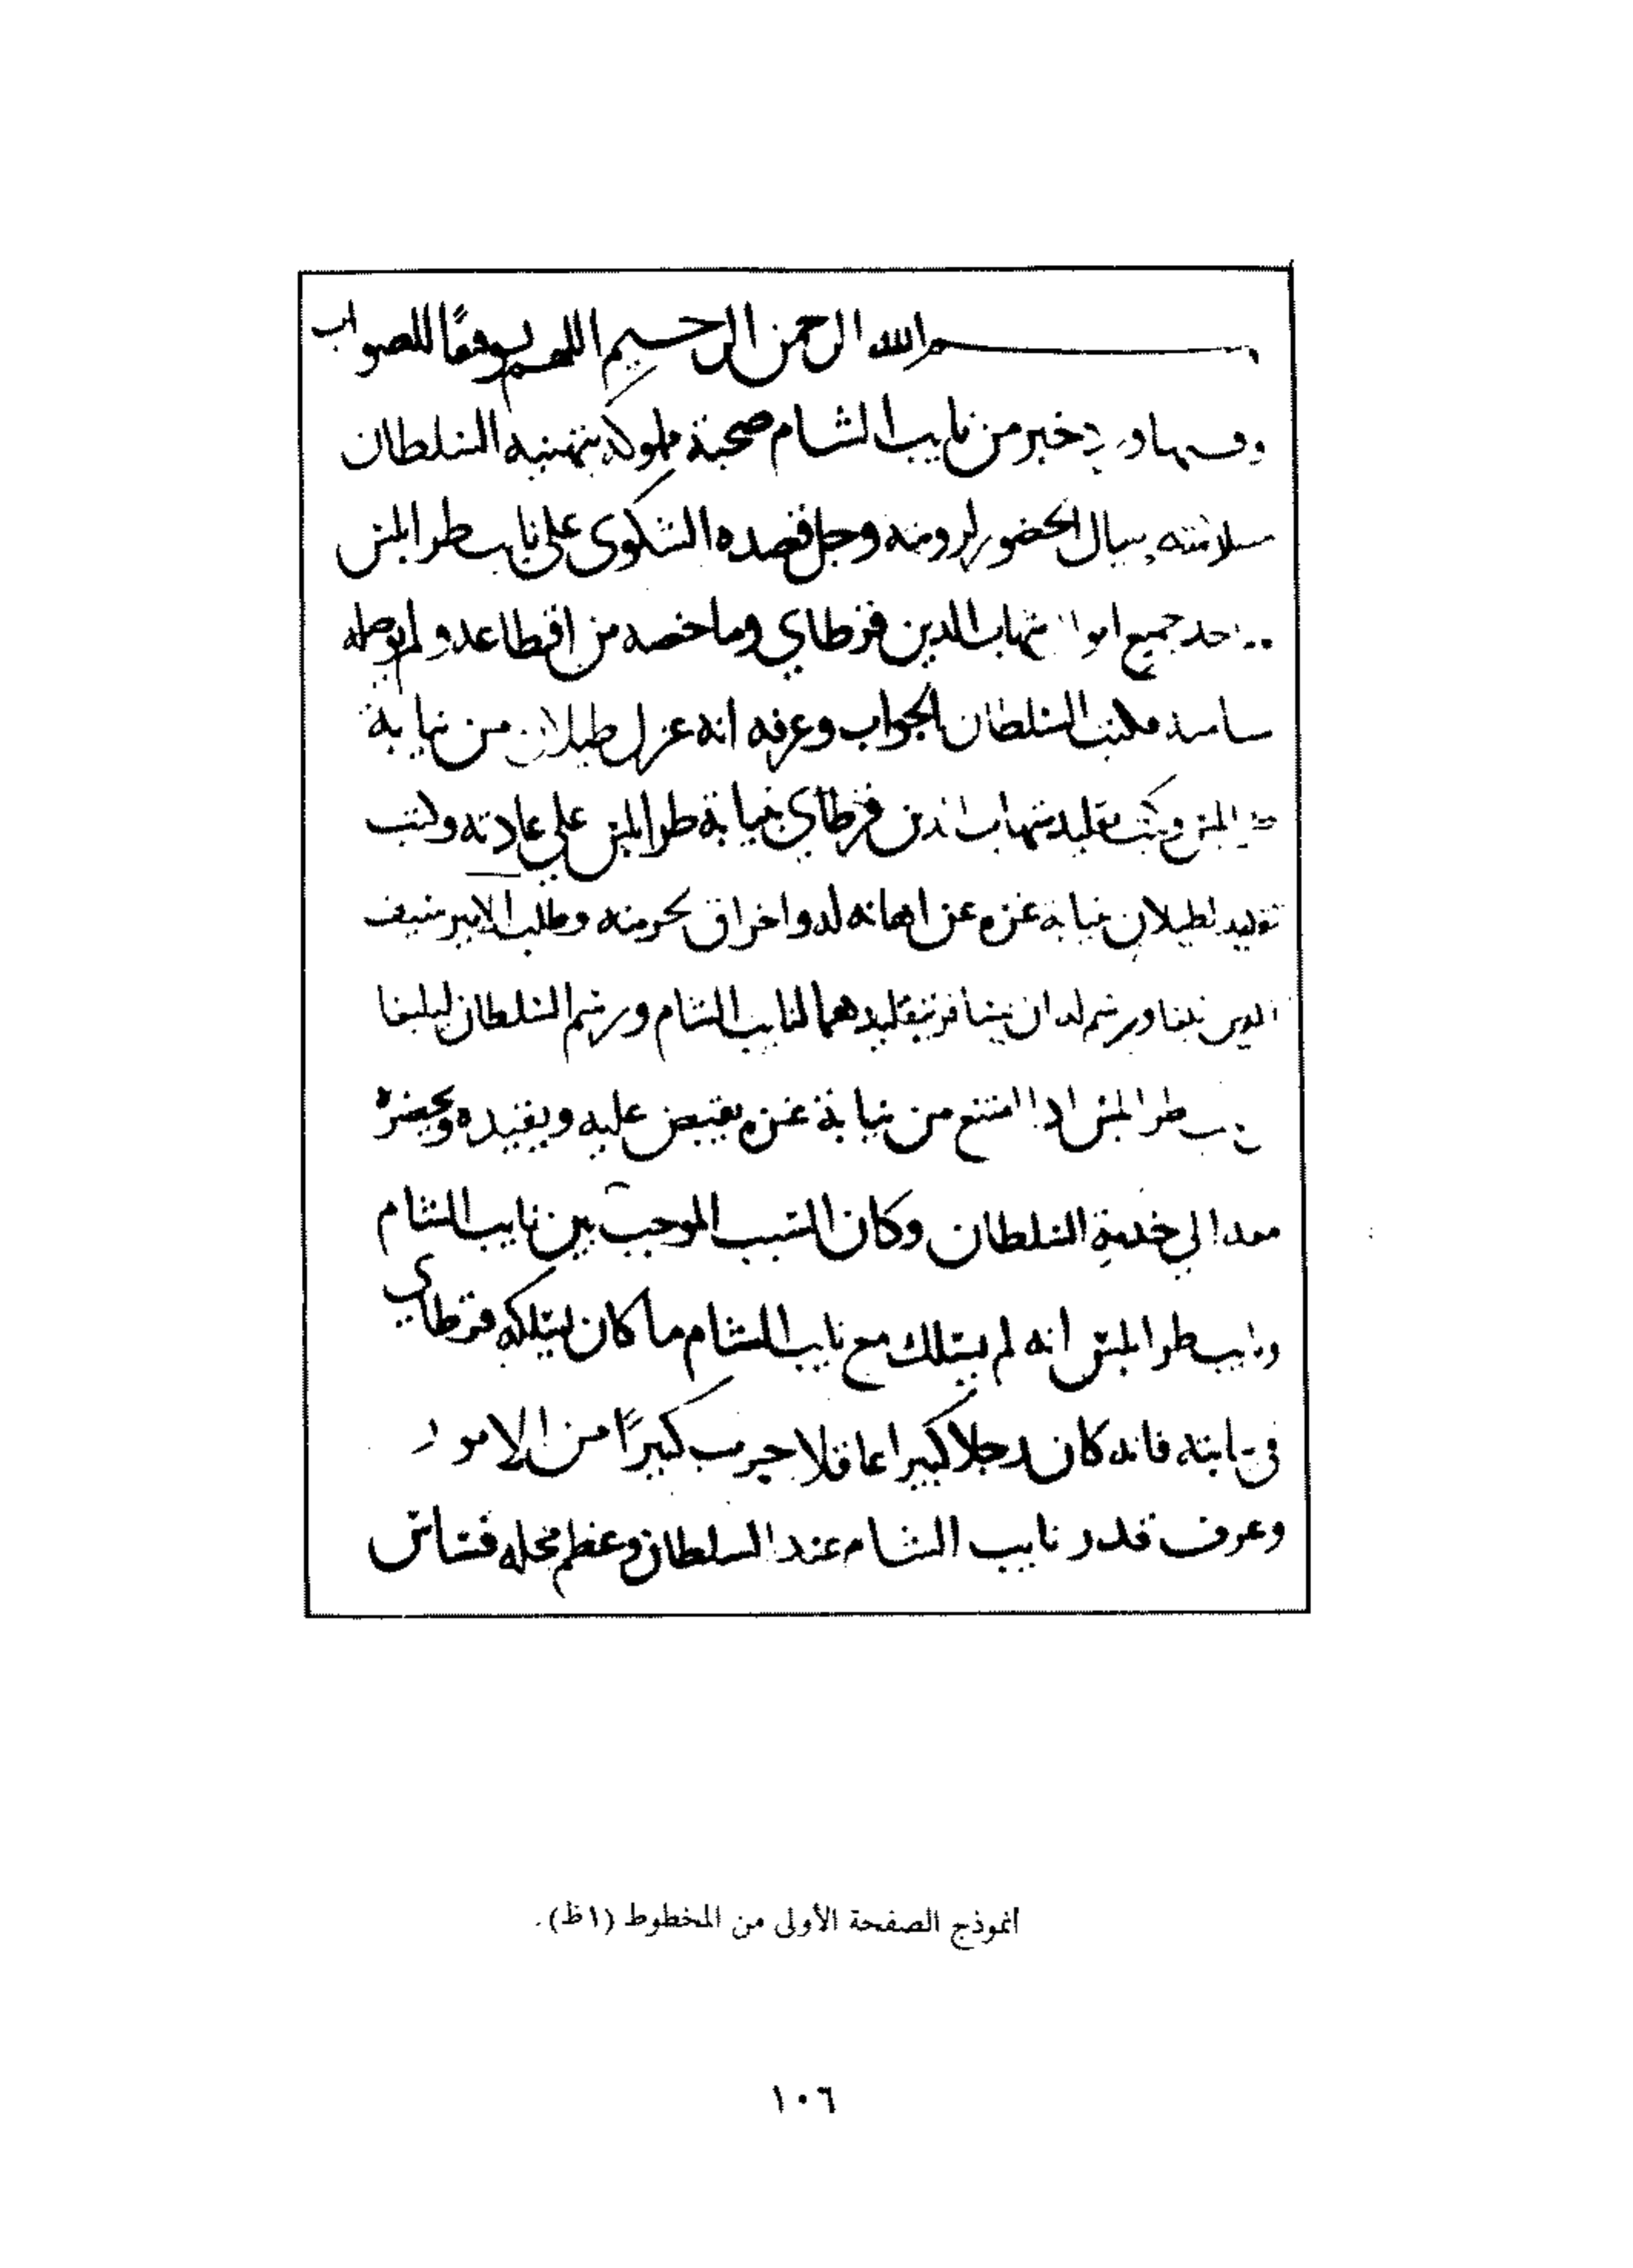 بسم الله الرحمن الرحيم اللهم توفيقًا للصواب
وفيها ورد خبر من نايب الشام صحبة مملوكه بتهنية السلطان
بسلامته وسال الحضور لرويته وجل قصده الشكوى على نايب طرابلس
اخد جميع اموال شهاب الدين قرطاي وما خصه من اقطاعه ولم يوصله
فكتب السلطان الجواب وعرفه انه عزل طينلان من نيابة
طرابلس وكتب تقليد شهاب الدين قرطاي بنيابة طرابلس على عادته وكتب
تقليد لطينلان نيابة غزه عن اهانه له واخراق بحرمته وطلب الامير سيف
الدين بلبغا ورسم له ان يسافر بتقليدهما لنايب الشام ورسم السلطان لبلبغا
نايب طرابلس ادا امتنع من نيابة غزه يقبض عليه ويقيده ويحضره
معه الى خدمة السلطان وكان السبب الموجب بين نايب الشام
ونايب طرابلس انه لم يسلك مع نايب الشام ما كان يسلكه قرطاي
في نيابته فانه كان رجلا كبيرا عاقلا جرب كثيرًا من الامور
وعرف قدر نايب الشام عند السلطان وعظم محله فساس
أنموذج الصفحة الأولى من المخطوط (١ظ).
١٠٦